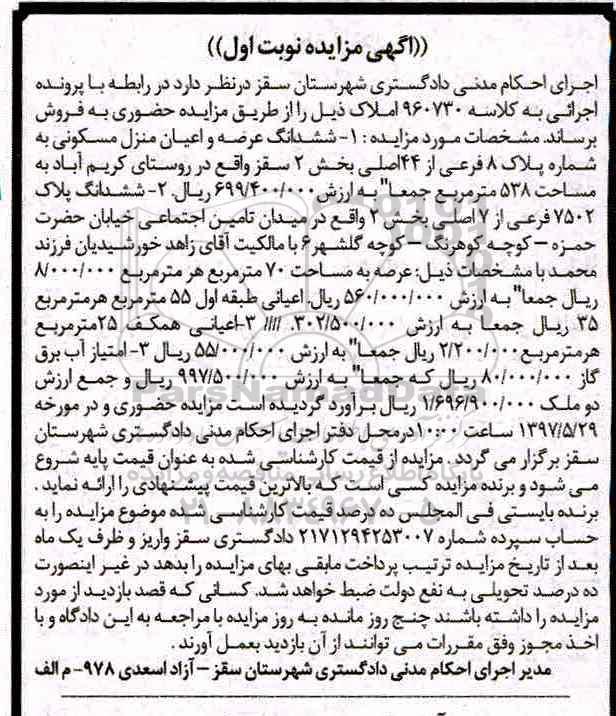 ((آگهی مزایده نوبت اول))
اجرای احکام مدنی دادگستری شهرستان سقز درنظر دارد در رابطه با پرونده
اجرائی به کلاسه ۹۶۰۷۳۰ املاک ذیل را از طریق مزایده حضوری به فروش
برساند. مشخصات مورد مزایده : ۱- ششدانگ عرصه و اعیان منزل مسکونی به
شماره پلاک ۸ فرعی از ۴۴اصلی بخش ۲ سقز واقع در روستای کریم آباد به
مساحت ۵۳۸ مترمربع جمعا" به ارزش ۶۹۹/۴۰۰/۰۰۰ ریال. ۲- ششدانگ پلاک
۷۵۰۲ فرعی از ۷ اصلی بخش ۲ واقع در میدان تامین اجتماعی خیابان حضرت
حمزه – کوچه کوهرنگ – کوچه گلشهر۶ با مالکیت آقای زاهد خورشیدیان فرزند
محمد با مشخصات ذیل: عرصه به مساحت ۷۰ مترمربع هر مترمربع ۸/۰۰۰/۰۰۰
ریال جمعا" به ارزش ۵۶۰/۰۰۰/۰۰۰ ریال. اعیانی طبقه اول ۵۵ مترمربع هرمترمربع
۳۵ ریال جمعا به ارزش ۳۰۲/۵۰۰/۰۰۰. //// ۳-اعیانی همکف ۲۵مترمربع
هرمترمربع۲/۲۰۰/۰۰۰ ریال جمعا" به ارزش ۵۵/۰۰۰/۰۰۰ ریال ۳- امتیاز آب برق
گاز ۸۰/۰۰۰/۰۰۰ ریال که جمعا" به ارزش ۹۹۷/۵۰۰/۰۰۰ ریال و جمع ارزش
دو ملک ۱/۶۹۶/۹۰۰/۰۰۰ ریال برآورد گردیده است مزایده حضوری و در مورخه
۱۳۹۷/۵/۲۹ ساعت ۱۰:۰۰ درمحل دفتر اجرای احکام مدنی دادگستری شهرستان
سقز برگزار می گردد . مزایده از قیمت کارشناسی شده به عنوان قیمت پایه شروع
می شود و برنده مزایده کسی است که بالاترین قیمت پیشنهادی را ارائه نماید .
برنده بایستی فی المجلس ده درصد قیمت کارشناسی شده موضوع مزایده را به
حساب سپرده شماره ۲۱۷۱۲۹۴۲۵۳۰۰۷ دادگستری سقز واریز و ظرف یک ماه
بعد از تاریخ مزایده ترتیب پرداخت مابقی بهای مزایده را بدهد در غیر اینصورت
ده درصد تحویلی به نفع دولت ضبط خواهد شد. کسانی که قصد بازدید از مورد
مزایده را داشته باشند چنج روز مانده به روز مزایده با مراجعه به این دادگاه و با
اخذ مجوز وفق مقررات می توانند از آن بازدید بعمل آورند .
مدیر اجرای احکام مدنی دادگستری شهرستان سقز – آزاد اسعدی ۹۷۸- م الف